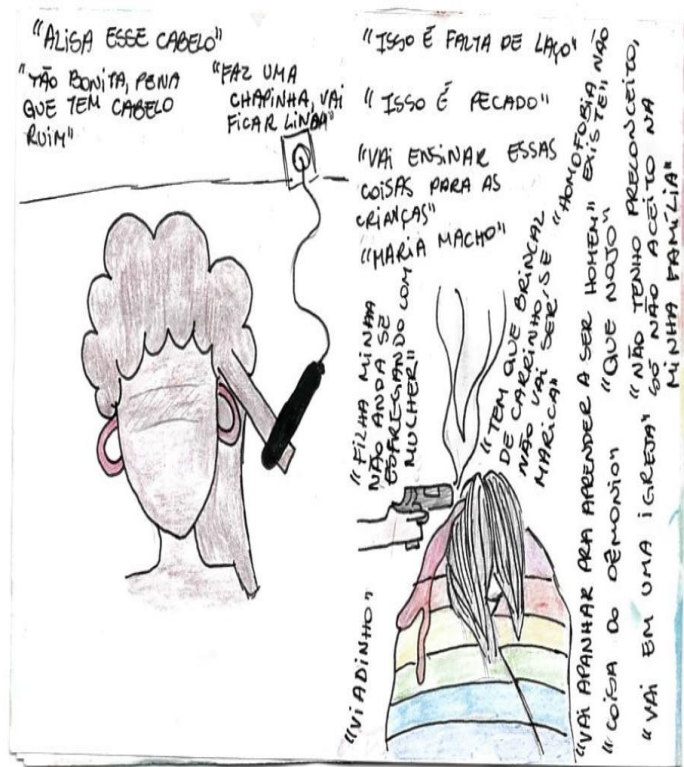 "ALISA ESSE CABELO"
"TÃO BONITA, PENA
QUE TEM CABELO
RUIM"
"FAZ UMA
CHAPINHA, VAI
FICAR LINDA"
"ISSO É FALTA DE LAÇO"
"ISSO É PECADO"
"VAI ENSINAR ESSAS
COISAS PARA AS
CRIANÇAS"
"MARIA MACHO"
"FILHA MINHA
NÃO ANDA SE
ESFREGANDO COM
MULHER"
"TEM QUE BRINCAR
DE CARRINHO, SE
NÃO VAI SER
MARICA"
"VIADINHO"
"VAI APANHAR PRA APRENDER A SER HOMEM"
"HOMOFOBIA NÃO
EXISTE"
"COISA DO DEMONIO"
"QUE NOJO"
"NÃO TENHO PRECONCEITO,
SÓ NÃO ACEITO NA
MINHA FAMÍLIA"
"VAI EM UMA IGREJA"